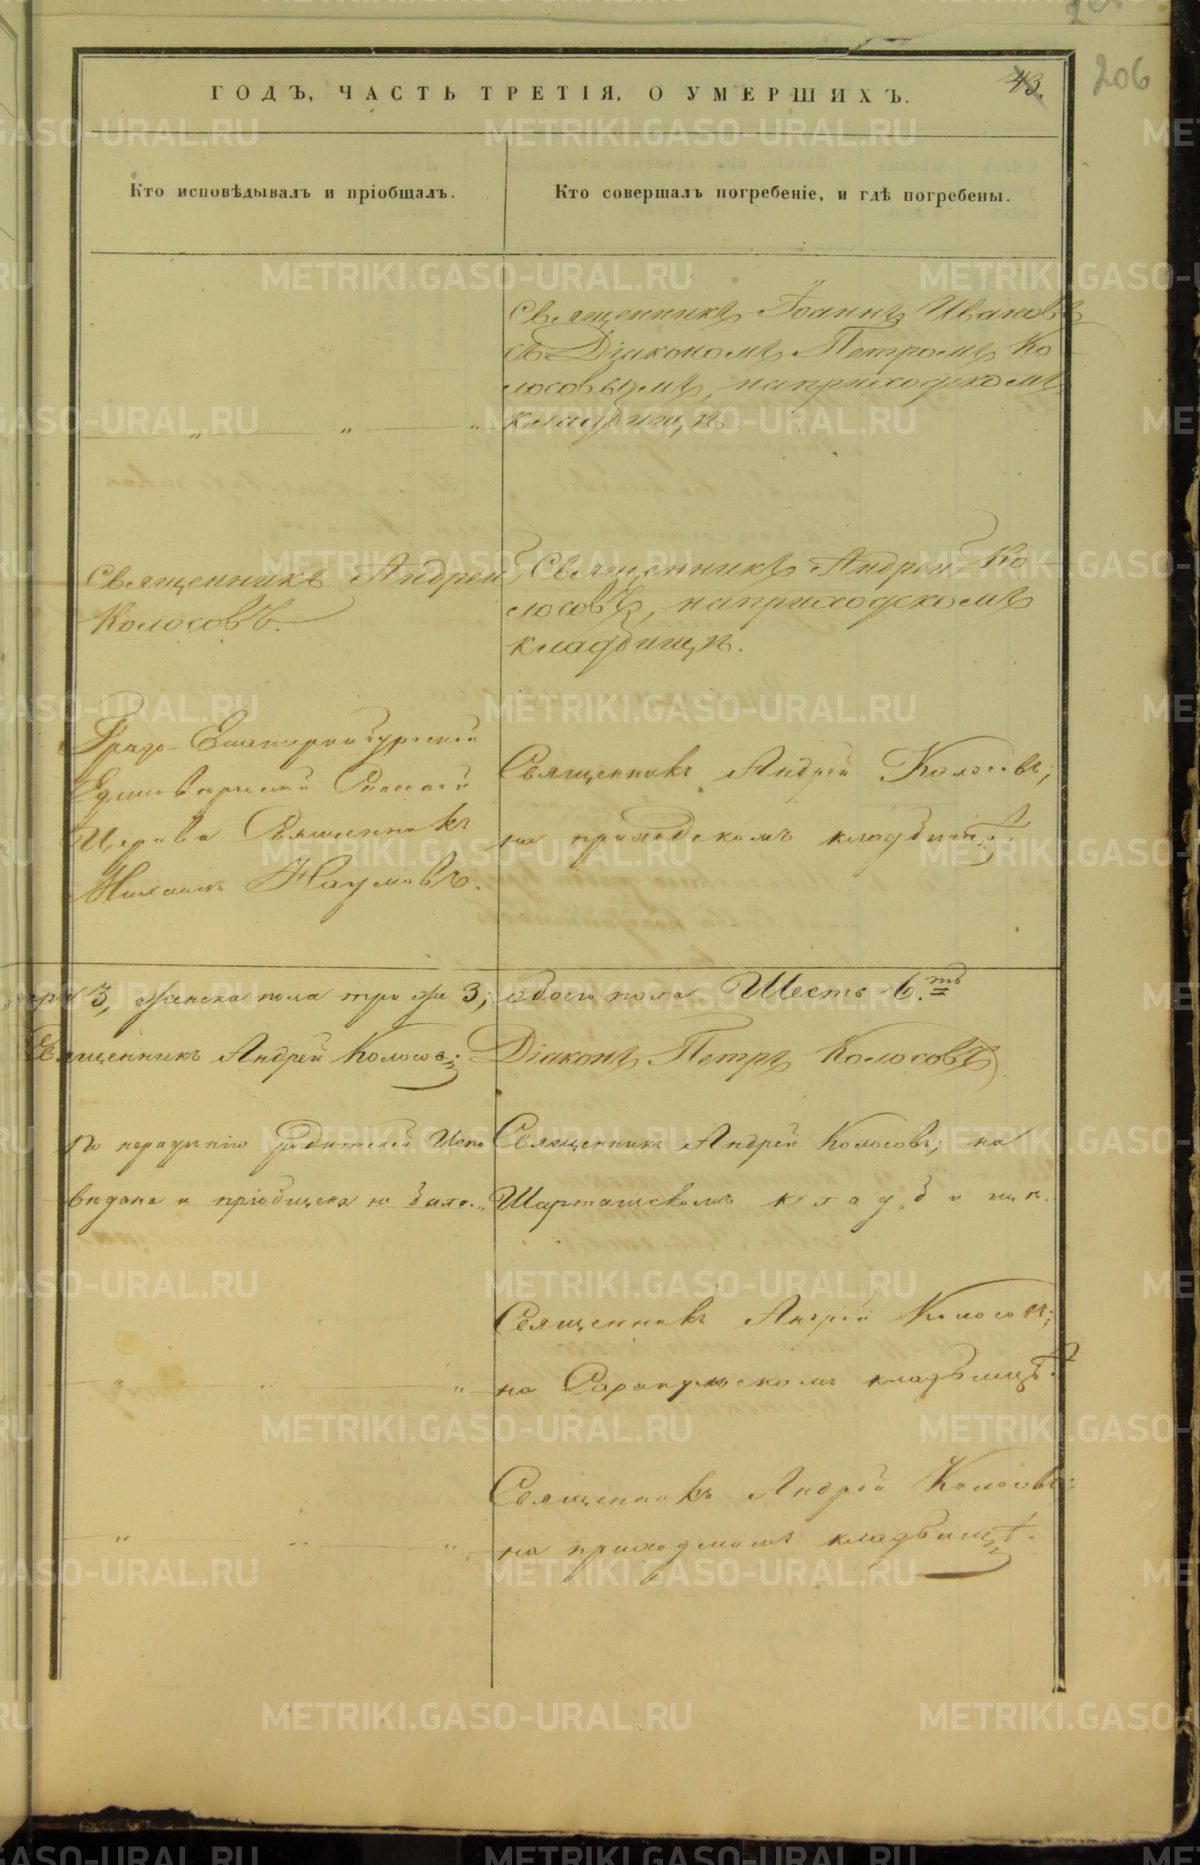 206
ГОДЪ, ЧАСТЬ ТРЕТІЯ, О УМЕРШИХЪ.
43.
Кто исповѣдывалъ и пріобщалъ.
Кто совершалъ погребеніе, и гдѣ погребены.
Священникъ Іоаннъ Ивановъ
съ Діакономъ Петромъ Ко
лосовымъ, на приходскомъ
кладбищѣ
Священникъ Андрей
Колосовъ.
Священникъ Андрей Ко
лосовъ, на приходскомъ
кладбищѣ.
Градо-Екатеринбургской
Единовѣрческой Спасской
Церкви Священникъ
Наумовъ.
Священникъ Андрей Колосовъ;
на приходскомъ кладбищѣ.
три 3, женска пола три же 3; обоего пола Шесть 6.ть
Священникъ Андрей Колосовъ; Діаконъ Петръ Колосовъ
По нерадѣнію родителей Испо
вѣдана и пріобщена не была.
Священникъ Андрей Колосовъ; на
Шарташскомъ кладбищѣ.
Священникъ Андрей Колосовъ;
на Сарапульскомъ кладбищѣ.
Священникъ Андрей Колосовъ;
на приходскомъ кладбищѣ.
METRIKI.GASO-URAL.RU